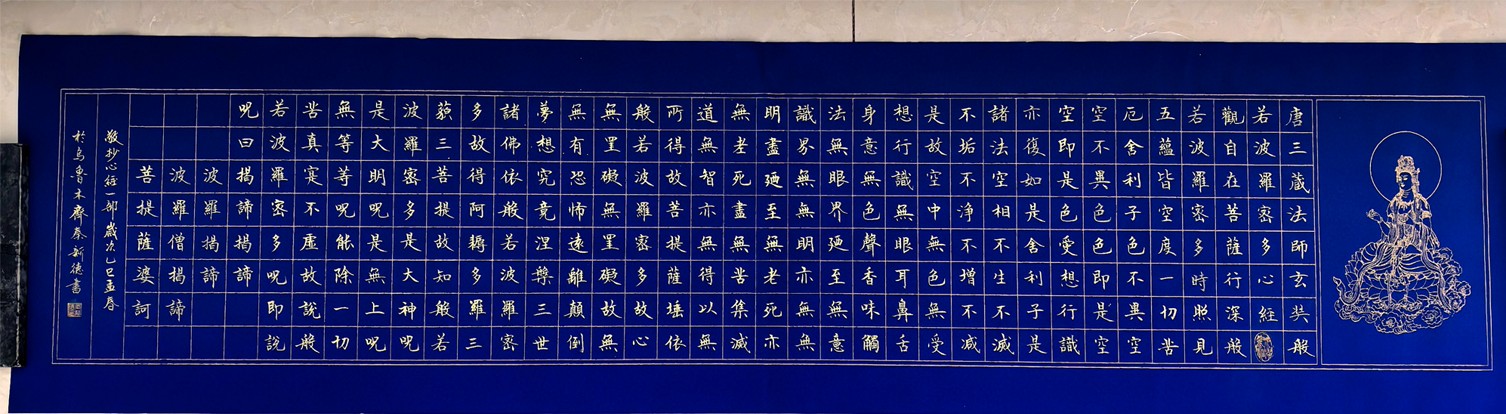 唐三蔵法師玄奘般
若波羅密多心經
觀自在菩薩行深般
若波羅密多時照見
五蘊皆空度一切苦
厄舍利子色不異空
空不異色色即是空
空即是色受想行識
亦復如是舍利子是
諸法空相不生不滅
不垢不净不增不减
是故空中無色無受
想行識無眼耳鼻舌
身意無色聲香味觸
法無眼界廼至無意
識界無無明亦無無
明盡廼至無老死亦
無老死盡無苦集滅
道無智亦無得以無
所得故菩提薩埵依
般若波羅密多故心
無罣礙無罣礙故無
無有恐怖遠離顛倒
夢想究竟涅槃三世
諸佛依般若波羅密
多故得阿耨多羅三
藐三菩提故知般若
波羅密多是大神呪
是大明呪是無上呪
無等等呪能除一切
苦真寔不虛故說般
若波羅密多呪即說
呪曰揭諦揭諦
波羅揭諦
波羅僧揭諦
菩提薩婆訶
敬抄心經一部歲次乙巳孟春
於烏魯木齊秦新德書